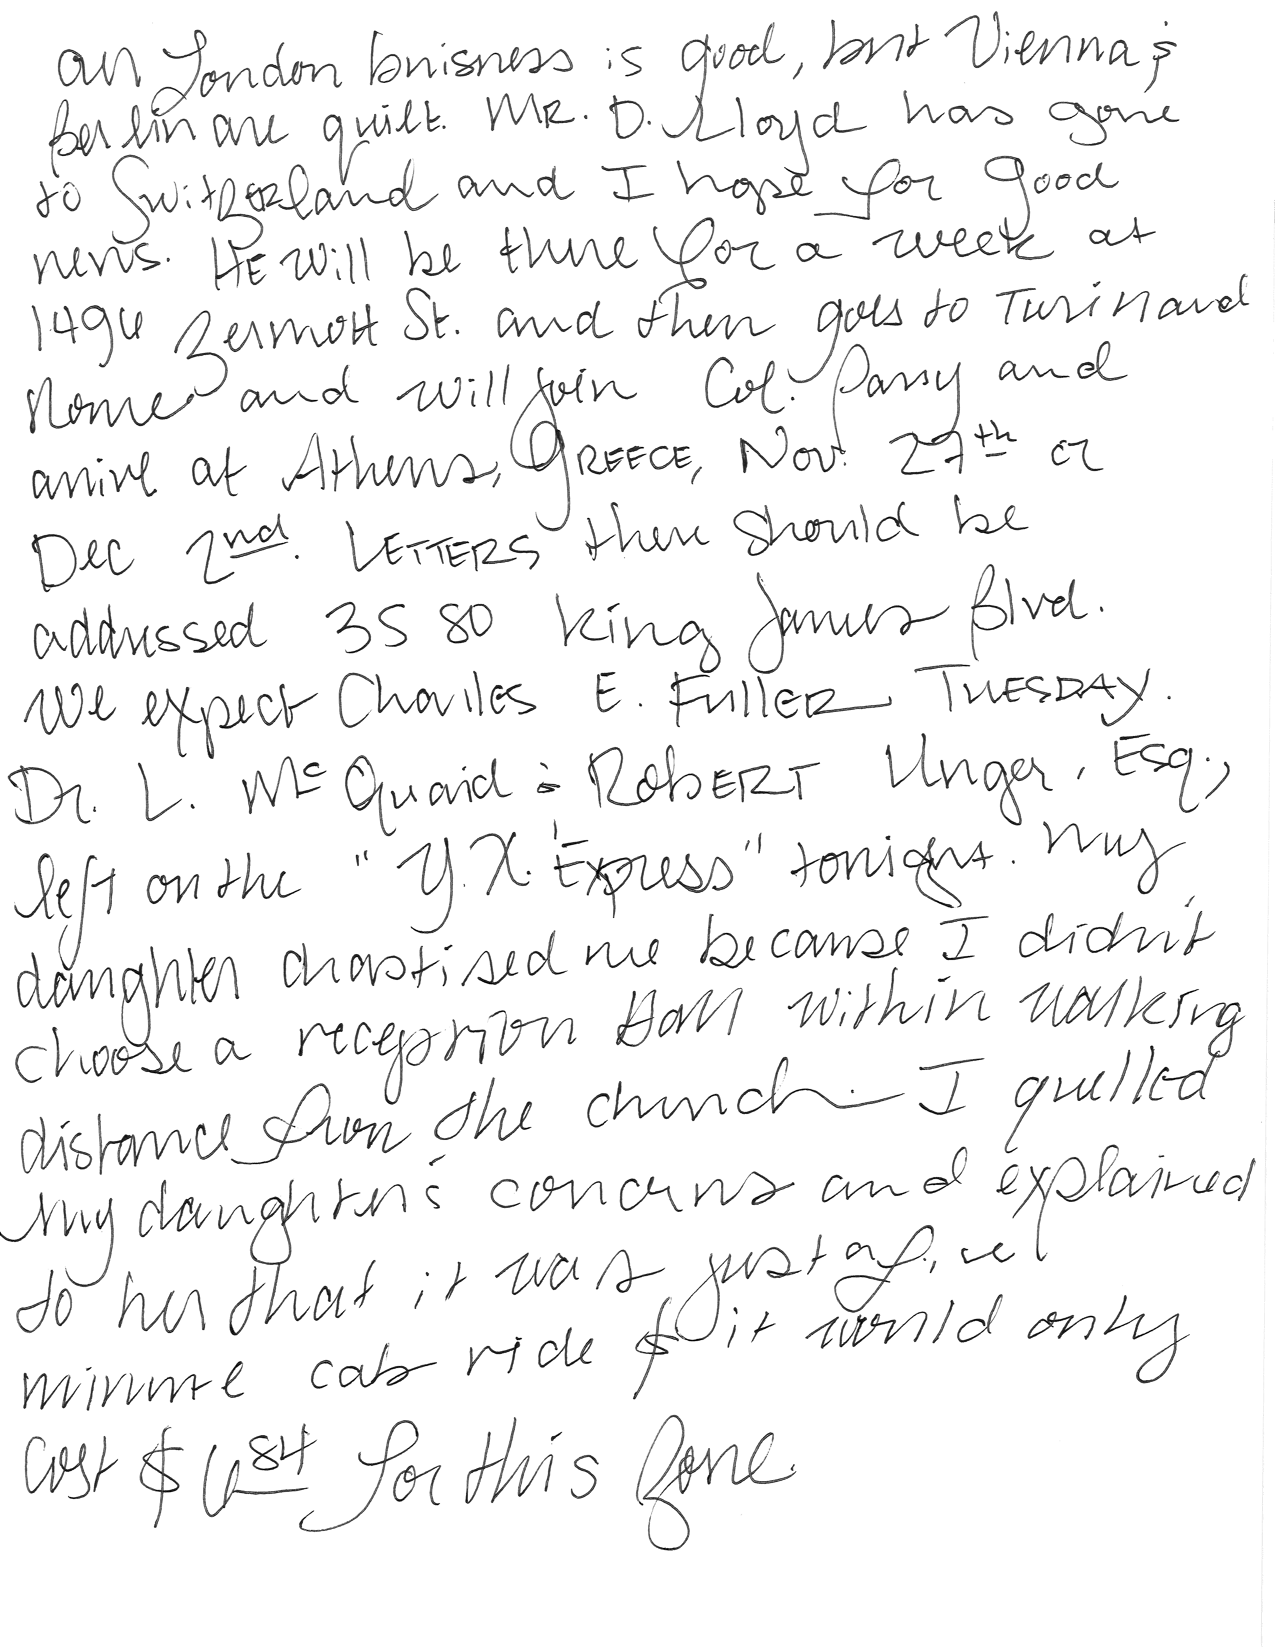 Our London buisness is good, but Vienna &
Berlin are quiet. MR. D. Lloyd has gone
to SwitzERland and I hope for good
news. HE will be there for a week at
1496 Zermott St. and then goes to Turin and
Rome and will join Col. Parry and
arrive at Athens, GREECE, Nov. 27th or
Dec 2nd. LETTERS there should be
addressed 3580 King James Blvd.
We expect Charles E. FullER TUESDAY.
Dr. L. Mc Quaid & RobERT Unger, Esq.,
left on the "Y.X. Express" tonight. My
daughter chastised me because I didn't
choose a reception Hall within walking
distance from the church. I quelled
my daughter's concerns and explained
to her that it was just a five
minute cab ride & it would only
cost $6 84 for this Zone.